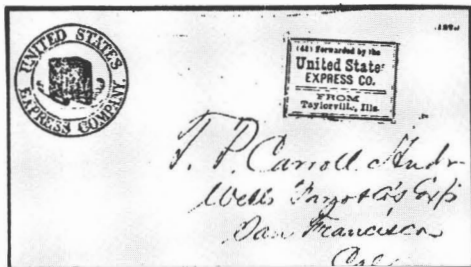 UNITED STATES
EXPRESS COMPANY
Forwarded by the
United States
EXPRESS CO.
FROM
Taylorville, Ills.
T. P. Carroll
Wells Fargo &
San Francisco
Cal